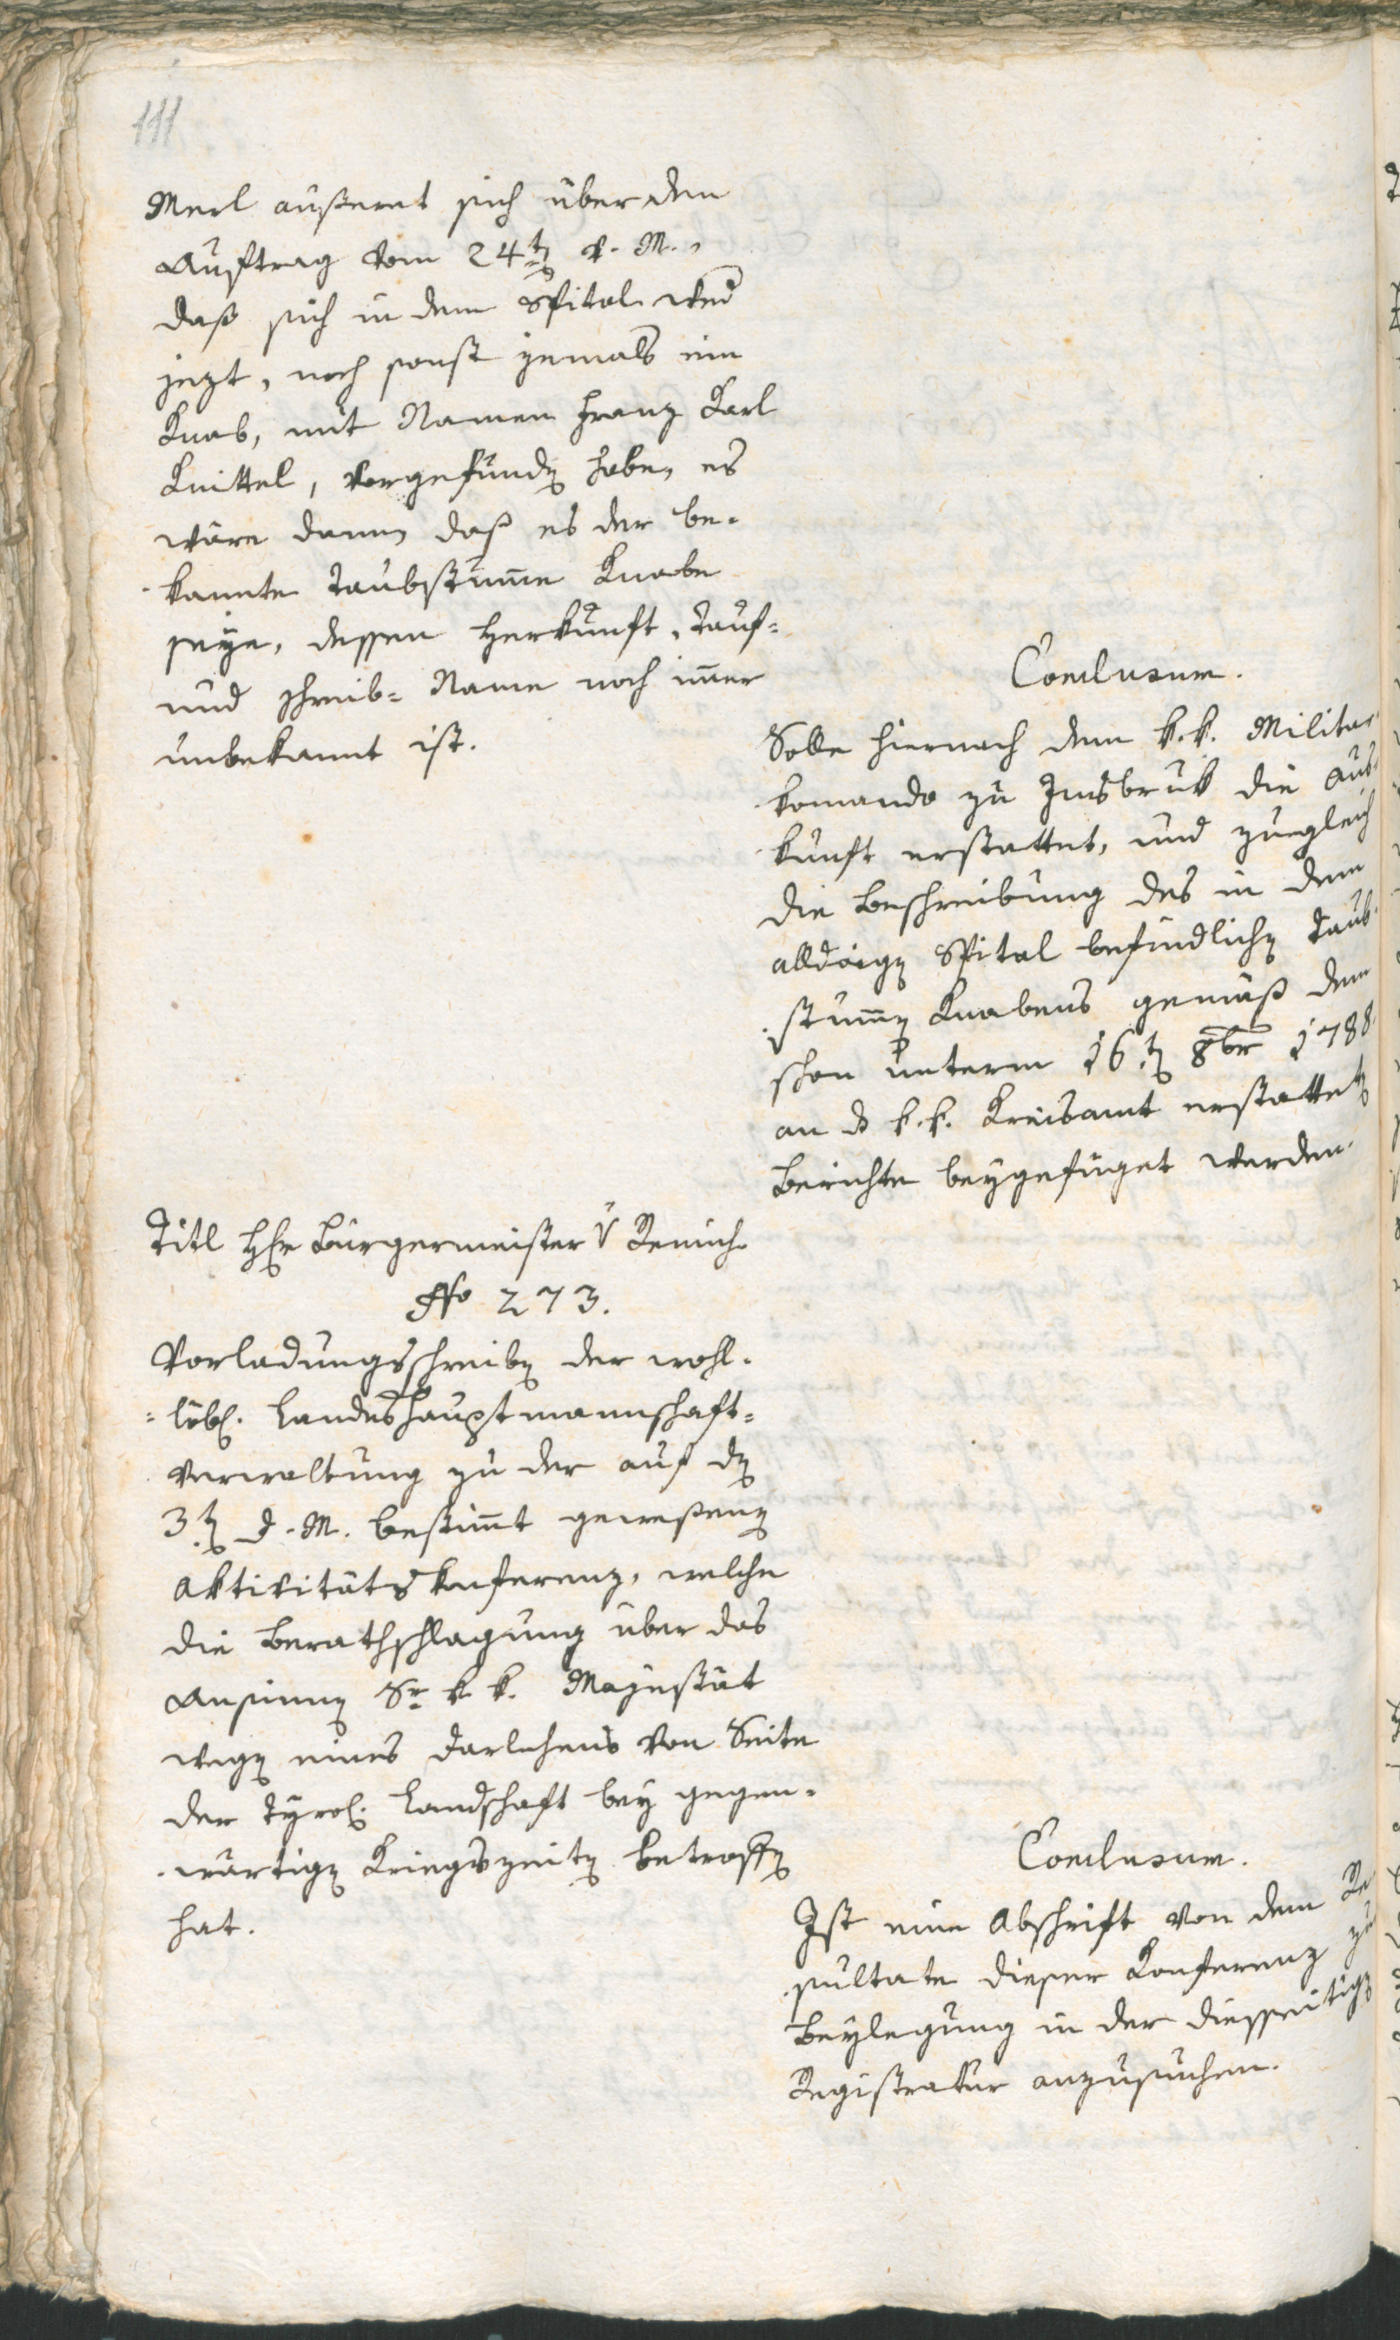 111
Merl äußeret sich über den
Auftrag vom 24t v. M.,
daß sich in dem Spital wed
jezt, noch sonst jemals ein
Knab, mit Namen Franz Karl
Knittel, vorgefunden habe, es
wäre dann, daß es der be-
kannte taubstumme Knabe
seye, dessen Herkunft, Tauf-
und Schreib-Name noch immer
unbekannt ist.
Conclusum.
Solle hiernach dem k.k. Militar
komando zu Innsbruk die Aus-
kunft erstattet, und zugleich
die Beschreibung des in dem
alldaigen Spital befindlichen taub-
stummen Knabens gemäß dem
schon unterm 16t 8br 1788
an d k.k. Kreisamt erstatteten
Berichte beygefüget werden.
Titl Hr Bürgermeister v Remich.
No 273.
Vorladungsschreiben der wohl-
löbl. Landeshauptmannschaft-
verwaltung zu der auf den
3t d. M. bestimmt gewesenen
Aktivitätskonferenz, welche
die Berathschlagung über das
Ansinnen Sr k. k. Majestät
wegen eines Darlehens von Seite
der Tyrol. Landschaft bey gegen-
wärtigen Kriegszeiten betroffen
hat.
Conclusum.
Ist eine Abschrift von dem Re
sultate dieser Konferenz zu
Beylegung in der diesseitigen
Registratur anzusuchen.